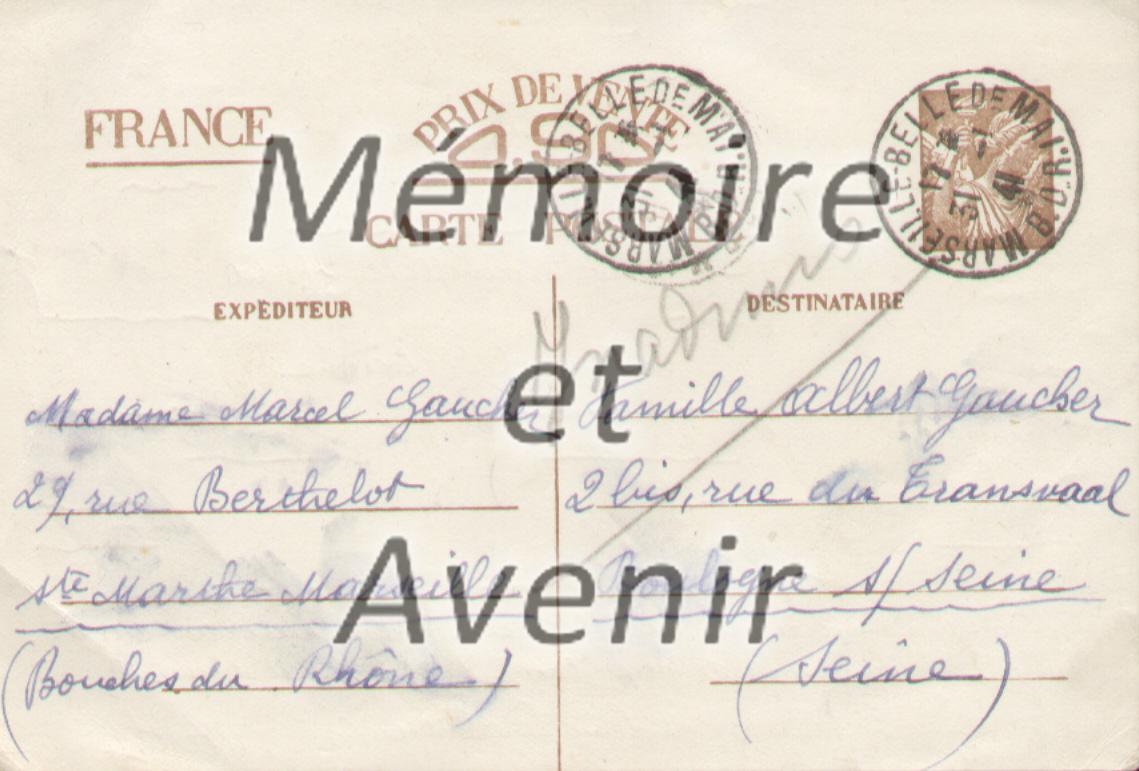 FRANCE
PRIX DE VENTE
0.90
CARTE POSTALE
MARSEILLE-BELLE DE MAI
B. D. R.
17
5-1
41
MARSEILLE-BELLE DE MAI. B. D. R.
17
5-1
41
EXPÉDITEUR
Madame Marcel Gaucher
29, rue Berthelot
Ste Marthe Marseille
(Bouches du Rhône)
DESTINATAIRE
Famille Albert Gaucher
2 bis, rue du Transvaal
Boulogne s/ Seine
(Seine)
Mémoire
et
Avenir